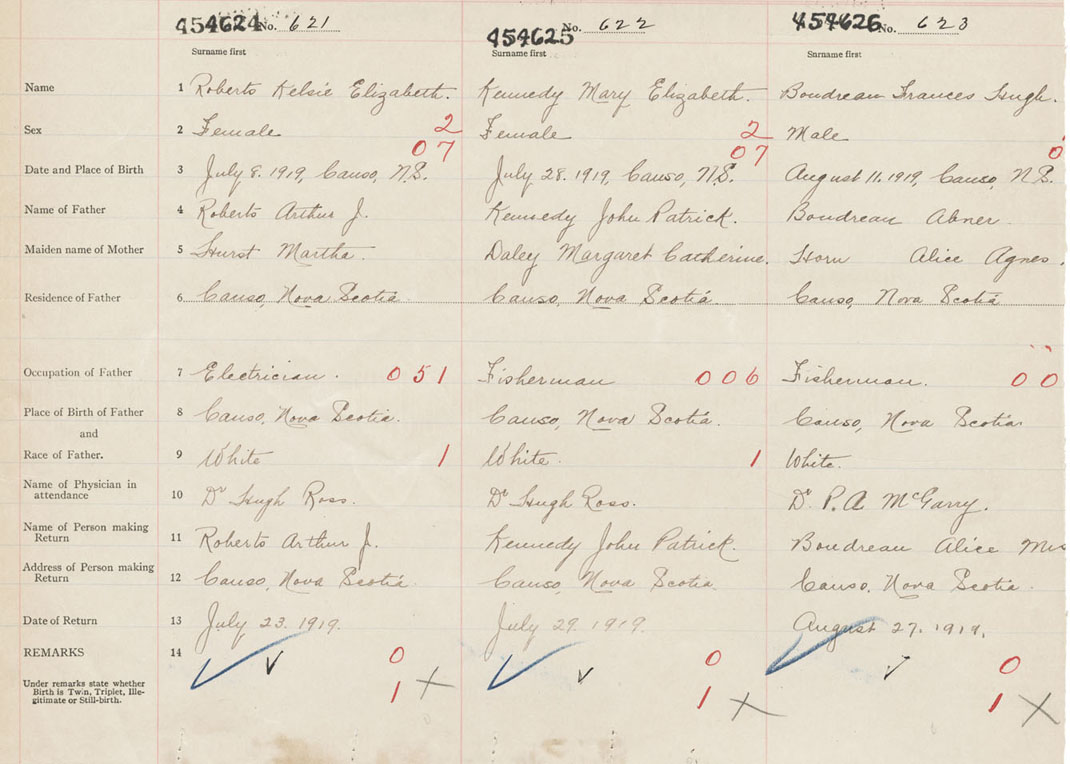 454624 No. 621 454625 No. 622 454626 No. 623
Surname first Surname first Surname first
Name 1 Roberts Kelsie Elizabeth. Kennedy Mary Elizabeth. Boudreau Frances Hugh.
Sex 2 Female 2 Female 2 Male
07 07 0
Date and Place of Birth 3 July 8. 1919, Canso, N.S. July 28. 1919, Canso, N.S. August 11. 1919, Canso, N.S.
Name of Father 4 Roberts Arthur J. Kennedy John Patrick. Boudreau Abner.
Maiden name of Mother 5 Hurst Martha. Daley Margaret Catherine. Horn Alice Agnes.
Residence of Father 6 Canso, Nova Scotia Canso, Nova Scotia. Canso, Nova Scotia
Occupation of Father 7 Electrician. 051 Fisherman 006 Fisherman. 00
Place of Birth of Father 8 Canso, Nova Scotia. Canso, Nova Scotia. Canso, Nova Scotia.
and
Race of Father. 9 White 1 White. 1 White.
Name of Physician in
attendance 10 Dr Hugh Ross. Dr Hugh Ross. Dr. P. A McGarry.
Name of Person making
Return 11 Roberts Arthur J. Kennedy John Patrick. Boudreau Alice Mrs
Address of Person making
Return 12 Canso, Nova Scotia. Canso, Nova Scotia. Canso, Nova Scotia.
Date of Return 13 July 23. 1919. July 29. 1919. August 27. 1919.
REMARKS 14 0 0 0
Under remarks state whether
Birth is Twin, Triplet, Ille-
gitimate or Still-birth. 1 X 1 X 1 X